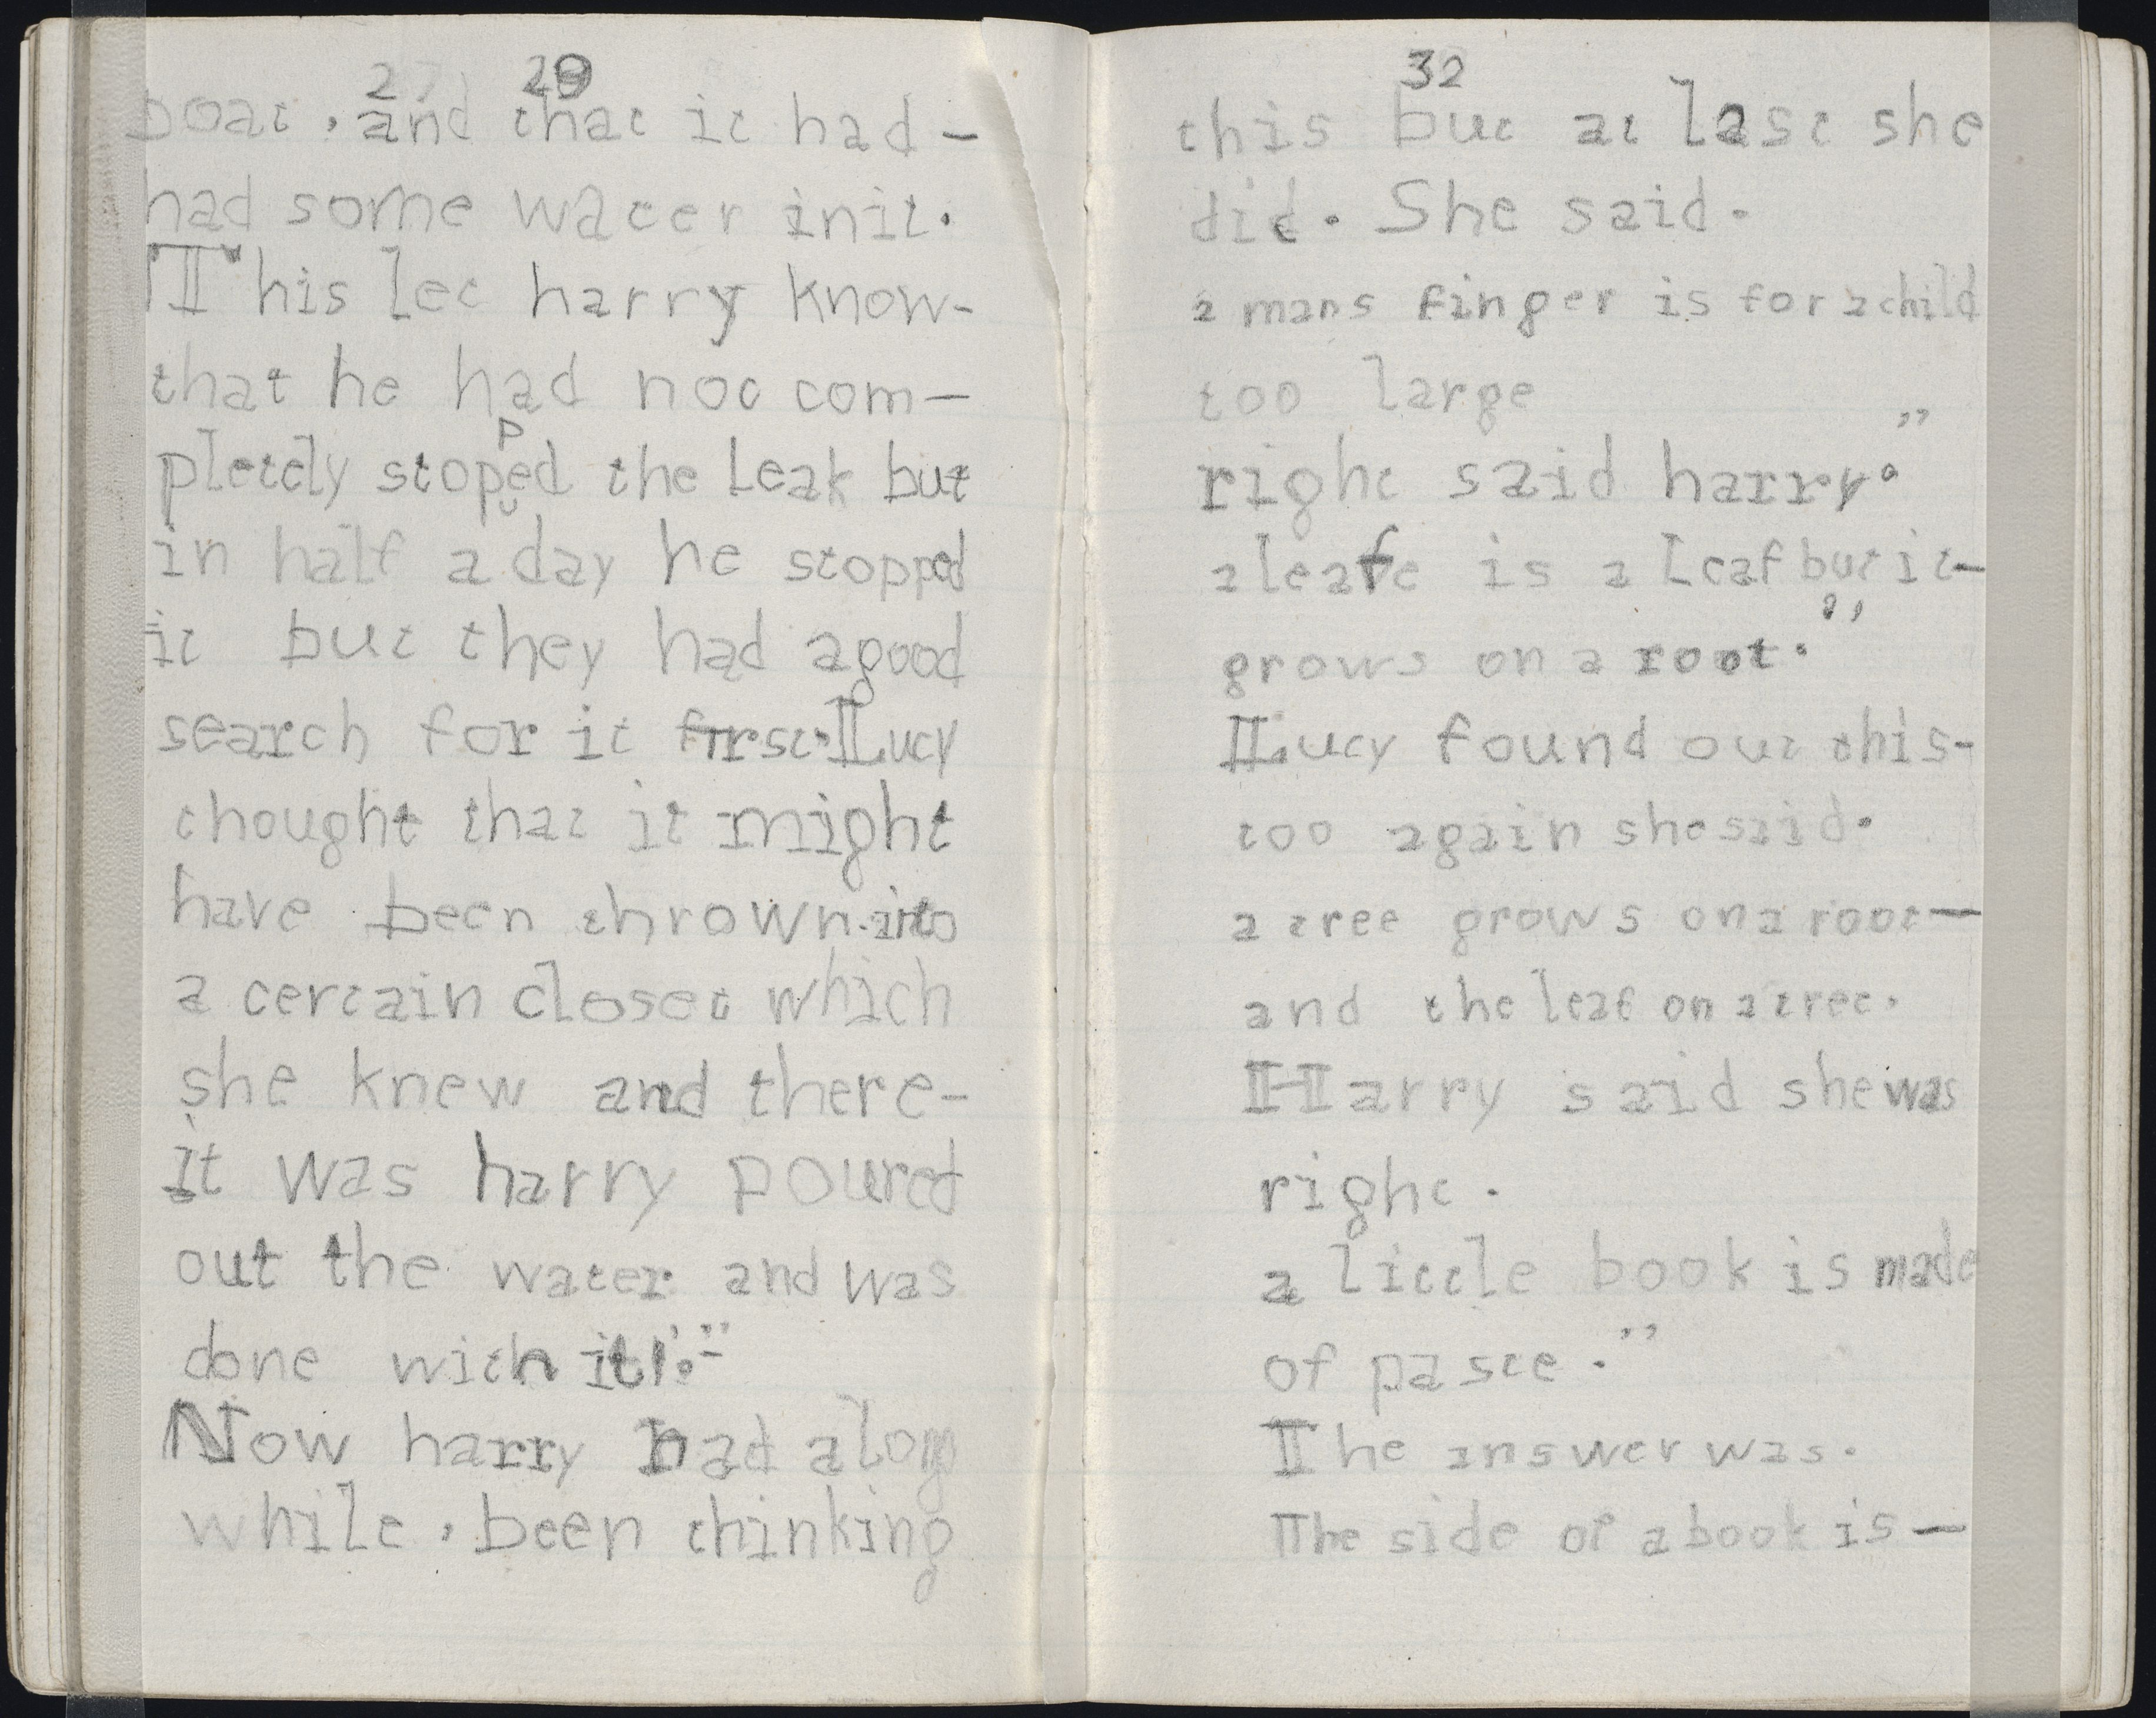 27 29
boat. and that it had-
had some water init.
This let harry know-
that he had not com-
p
pletely stoped the Leak but
in half a day he stopped
it but they had agood
search for it first. Lucy
thought that it might
have been thrown into
a certain closet which
she knew and there-
it was harry poured
out the water and was
done with it!
Now harry had along
while. been thinking
32
this but at last she
did. She said.
a mans finger is for a child
too large
right said harry."
a leafe is a Leaf but it-
grows on a root."
Lucy found out this-
too again she said.
a tree grows on a root-
and the leaf on a tree.
Harry said she was
right.
a little book is made
of paste."
The answer was.
The side of a book is-